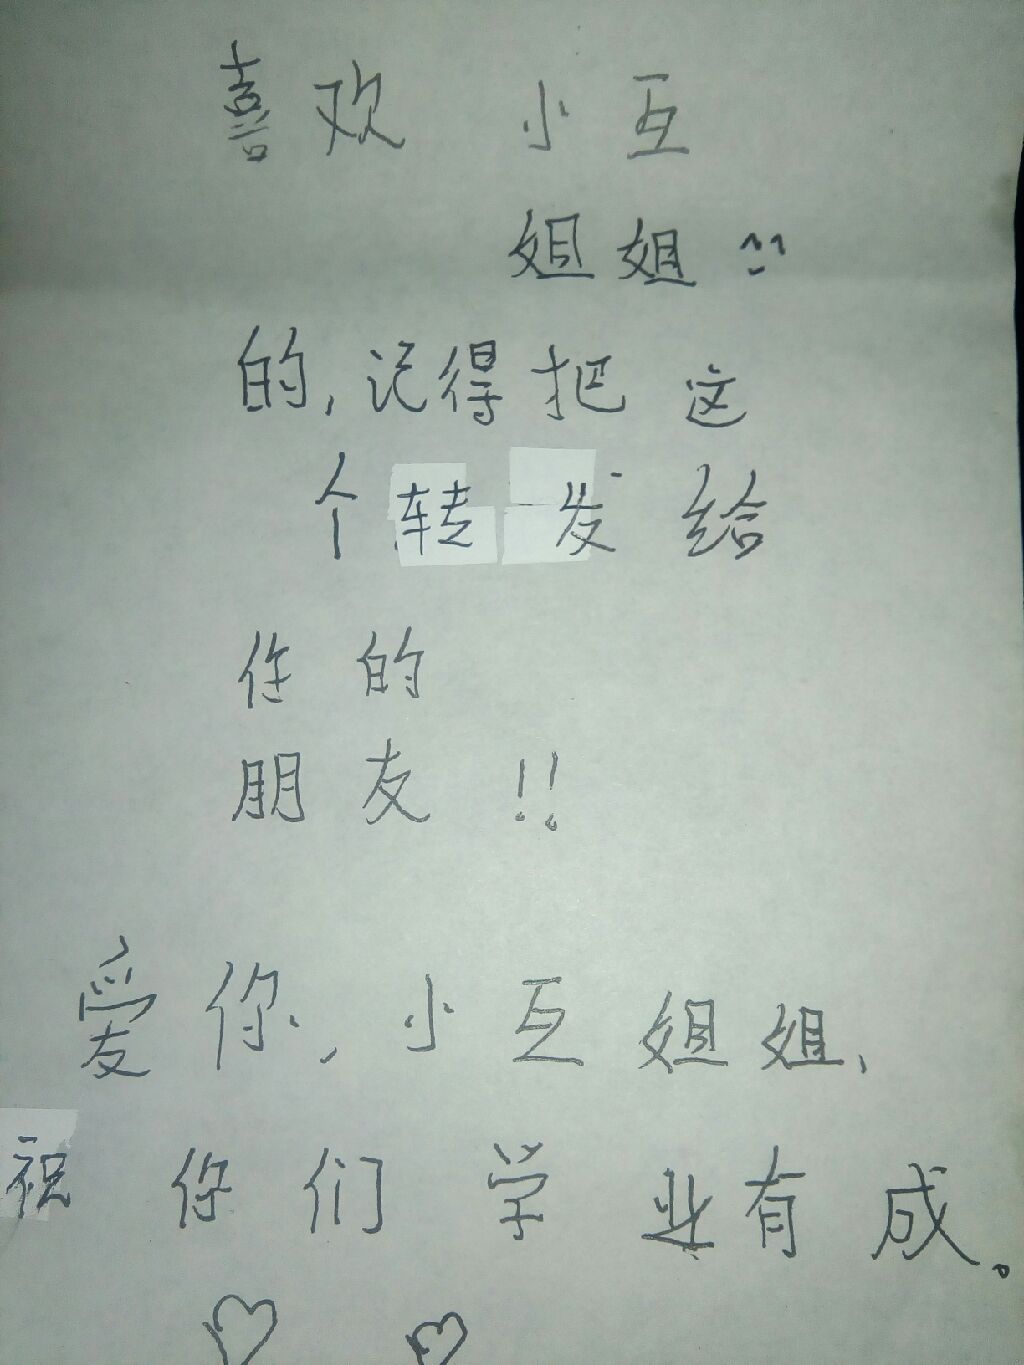 喜欢 小互
姐姐
的,记得把 这
个转发给
你的
朋友!!
爱你,小互姐姐,
祝你们学业有成。